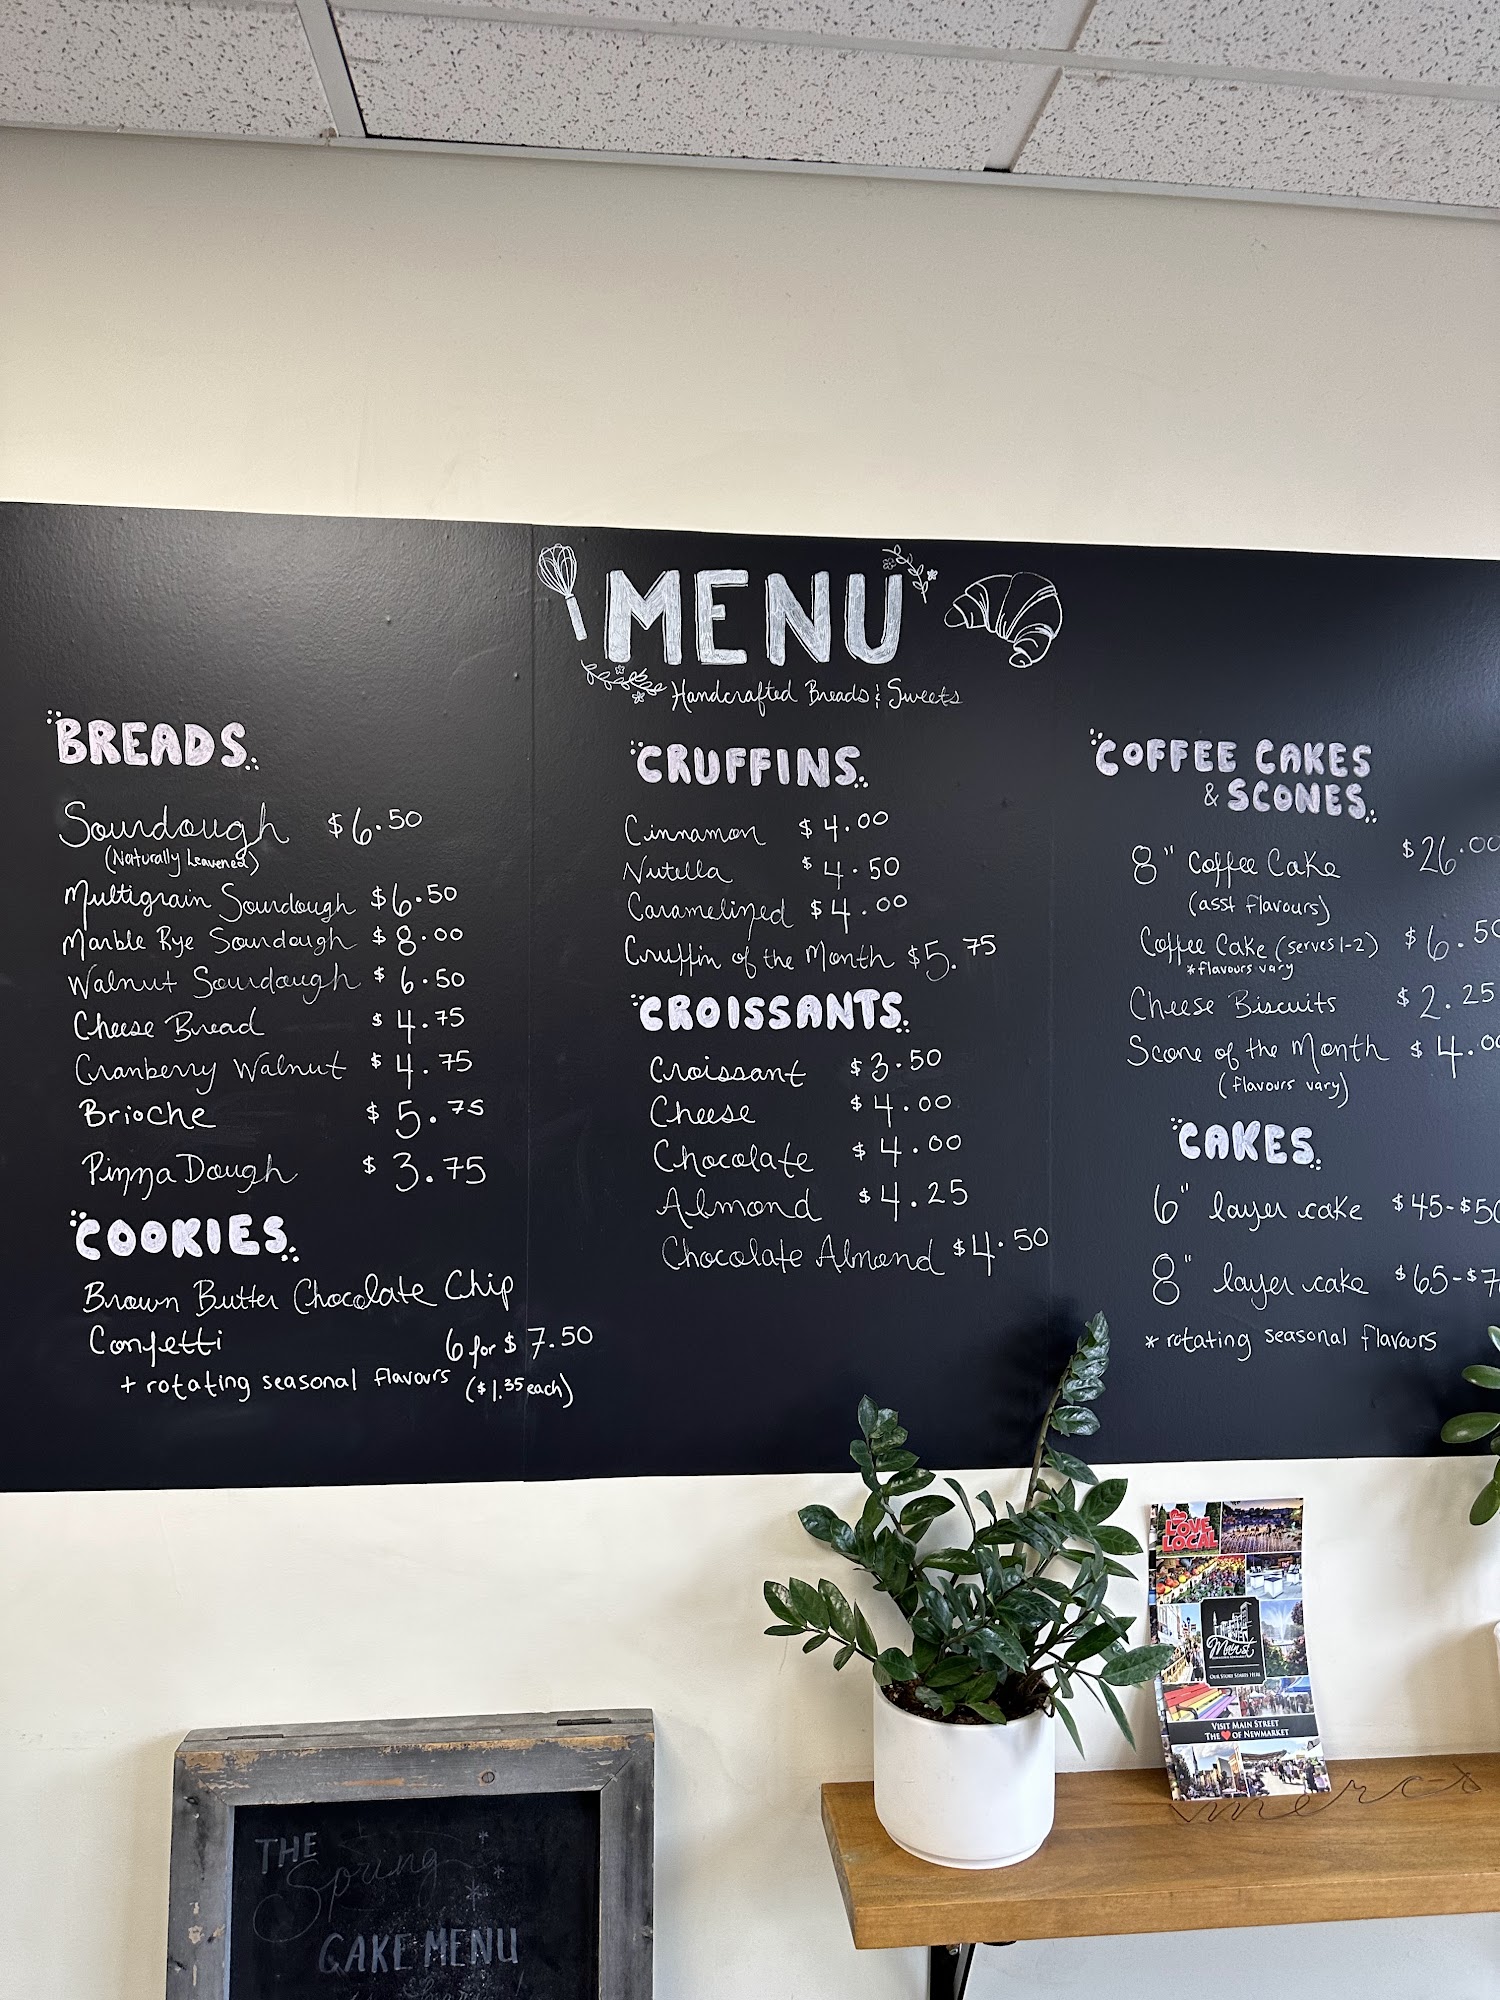 MENU
Handcrafted Breads & Sweets
BREADS
Sourdough $6.50
(Naturally Leavened)
Multigrain Sourdough $6.50
Marble Rye Sourdough $8.00
Walnut Sourdough $6.50
Cheese Bread $4.75
Cranberry Walnut $4.75
Brioche $5.75
Pizza Dough $3.75
COOKIES
Brown Butter Chocolate Chip
Confetti 6 for $7.50
+ rotating seasonal flavours ($1.35 each)
CRUFFINS
Cinnamon $4.00
Nutella $4.50
Caramelized $4.00
Cruffin of the Month $5.75
CROISSANTS
Croissant $3.50
Cheese $4.00
Chocolate $4.00
Almond $4.25
Chocolate Almond $4.50
COFFEE CAKES
& SCONES
8" Coffee Cake $26.00
(asst flavours)
Coffee Cake (serves 1-2) $6.50
*flavours vary
Cheese Biscuits $2.25
Scone of the Month $4.00
(flavours vary)
CAKES
6" layer cake $45-$50
8" layer cake $65-$7
* rotating seasonal flavours
LOVE
LOCAL
Main St
OUR STORY STARTS HERE
VISIT MAIN STREET
THE ❤ OF NEWMARKET
merci
THE
Spring
CAKE MENU